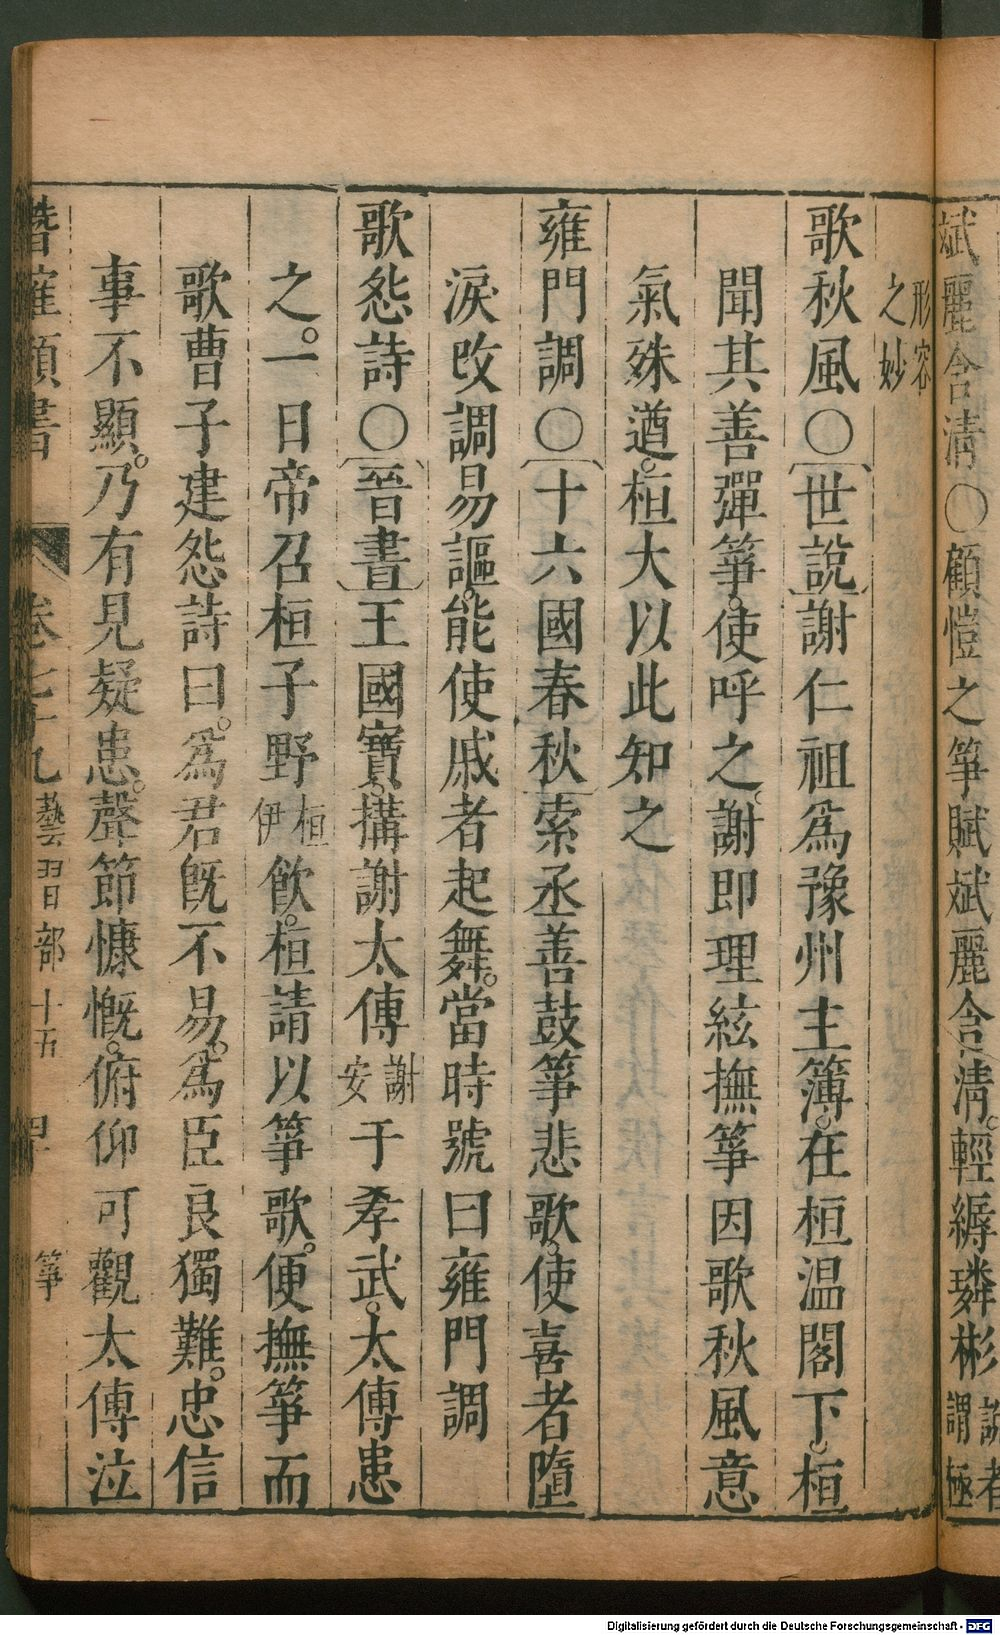 斌麗含清○顧愷之箏賦斌麗含清。輕縟璘彬說者謂極
形容之妙
歌秋風○世說謝仁祖爲豫州主簿。在桓温閣下桓
聞其善彈箏。使呼之。謝即理絃撫箏因歌秋風意
氣殊遒。桓大以此知之
雍門調○十六國春秋索丞善鼓箏悲歌。使喜者墮
淚改調易謳。能使戚者起舞。當時號曰雍門調
歌怨詩○晉書王國寶。搆謝太傅謝安于孝武。太傅患
之。一日帝召桓子野桓伊飲。桓請以箏歌。便撫箏而
歌曹子建怨詩曰。爲君旣不易。爲臣良獨難。忠信
事不顯。乃有見疑患。聲節慷慨。俯仰可觀太傅泣
潛確類書 卷七十九藝習部十五 四十 箏
Digitalisierung gefördert durch die Deutsche Forschungsgemeinschaft - DFG